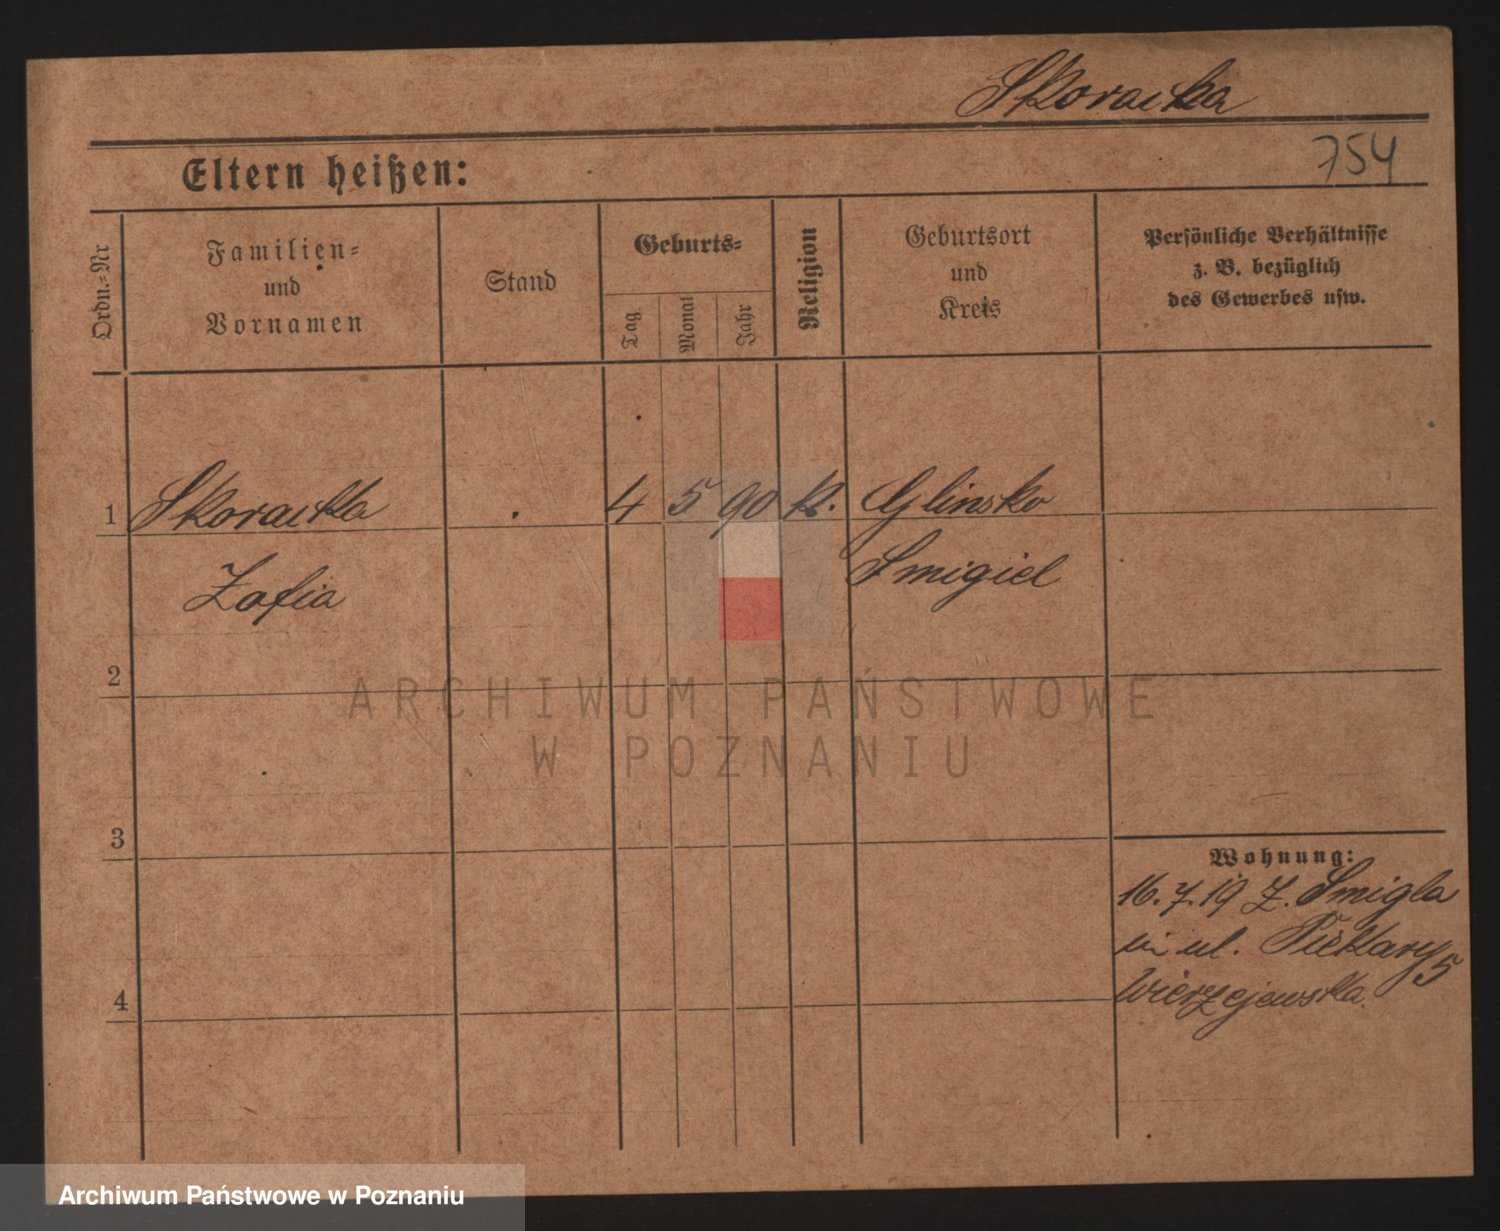 Skoracka
Eltern heißen:
754
Ordn.=Nr
Familien=
und
Vornamen
Stand
Geburts=
Tag
Monat
Jahr
Religion
Geburtsort
und
Kreis
Persönliche Verhältnisse
z. B. bezüglich
des Gewerbes usw.
1
Skoracka
4 5 90 kt. Glinsko
Zofia
Smigiel
2
ARCHIWUM PAŃSTWOWE
W POZNANIU
3
Wohnung:
16.7.19 Z. Smigla
ul. Piekary 5
Wierzejewska.
4
Archiwum Państwowe w Poznaniu